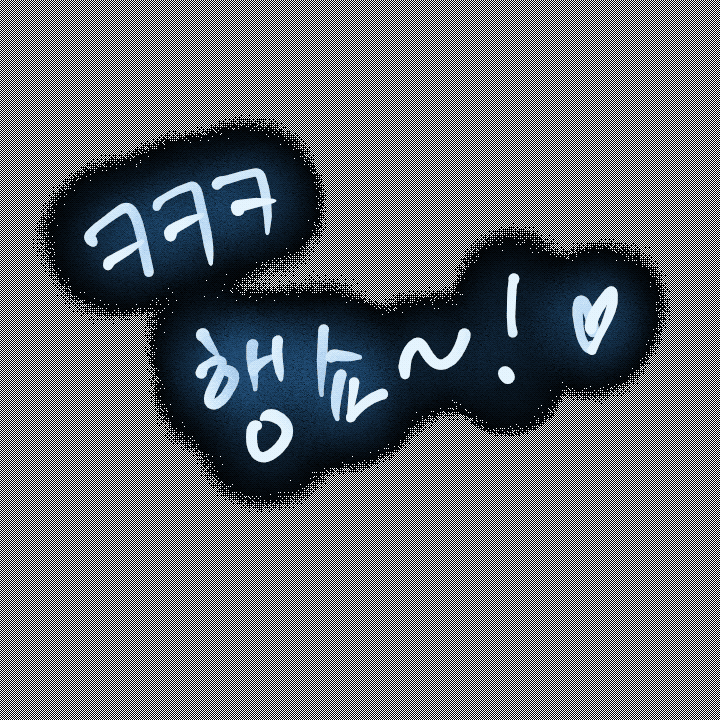 ㅋㅋㅋ
행쇼~! ♡